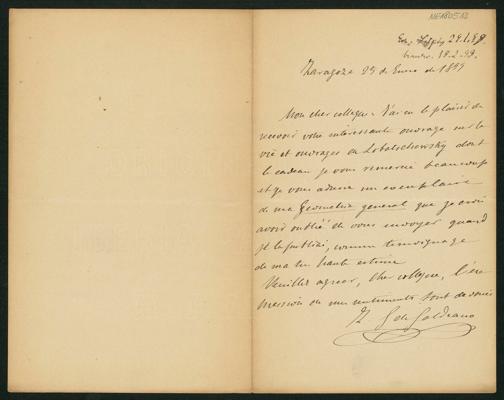 29.1.99.
18.2.99.
Zaragoza 25 de Enero de 1899
Mon cher collegue: J'ai eu le plaisir de
recevoir votre intéressante ouvrage sur la
vie et ouvrages de Lobatschewsky dont
le cadeau je vous remercie beaucoup
et je vous adresse un exemplaire
de ma Geometria general que je
avoir oublié de vous envoyer quand
je le publiai, comme temoignage
de ma tres haute estime
Veuillez agreer, cher collegue, l'ex
pression de mes sentiments tout devoués
Z G de Galdeano